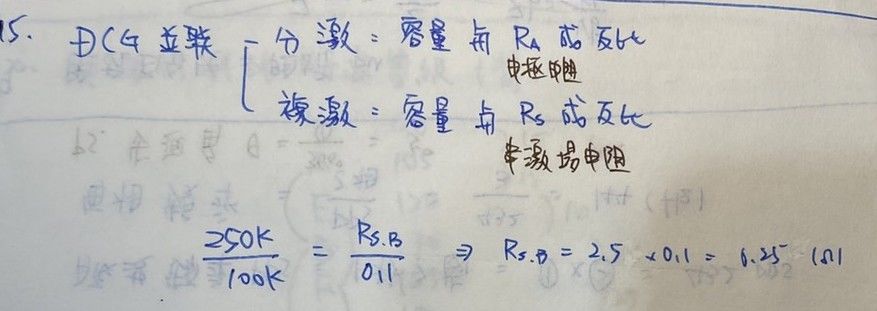 15. DCG 並联 - 分激：容量与 RA 成反比
电枢电阻
複激：容量与 Rs 成反比
串激場电阻
250K/100K = Rs.B/0.1 ⇒ Rs.B = 2.5 × 0.1 = 0.25 (Ω)